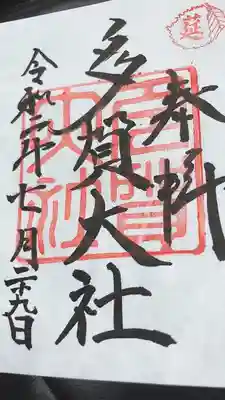 奉拝
多賀大社
令和二年七月二十九日
莚